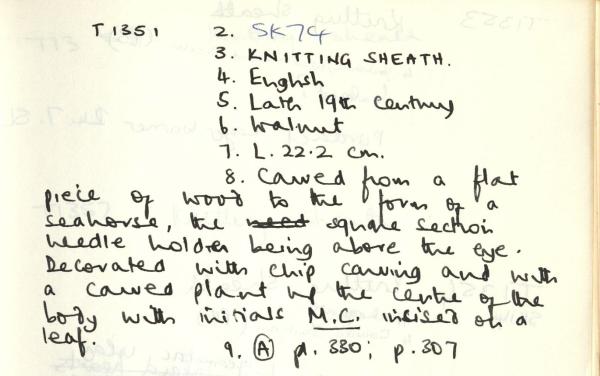 T1351 2. SK74
3. KNITTING SHEATH.
4. English
5. Later 19th century
6. Walnut
7. L. 22.2 cm.
8. Carved from a flat
piece of wood to the form of a
seahorse, the need square section
needle holder being above the eye.
Decorated with chip carving and with
a carved plant up the centre of the
body with initials M.C. incised on a
leaf.
9. (A) pl. 330; p. 307